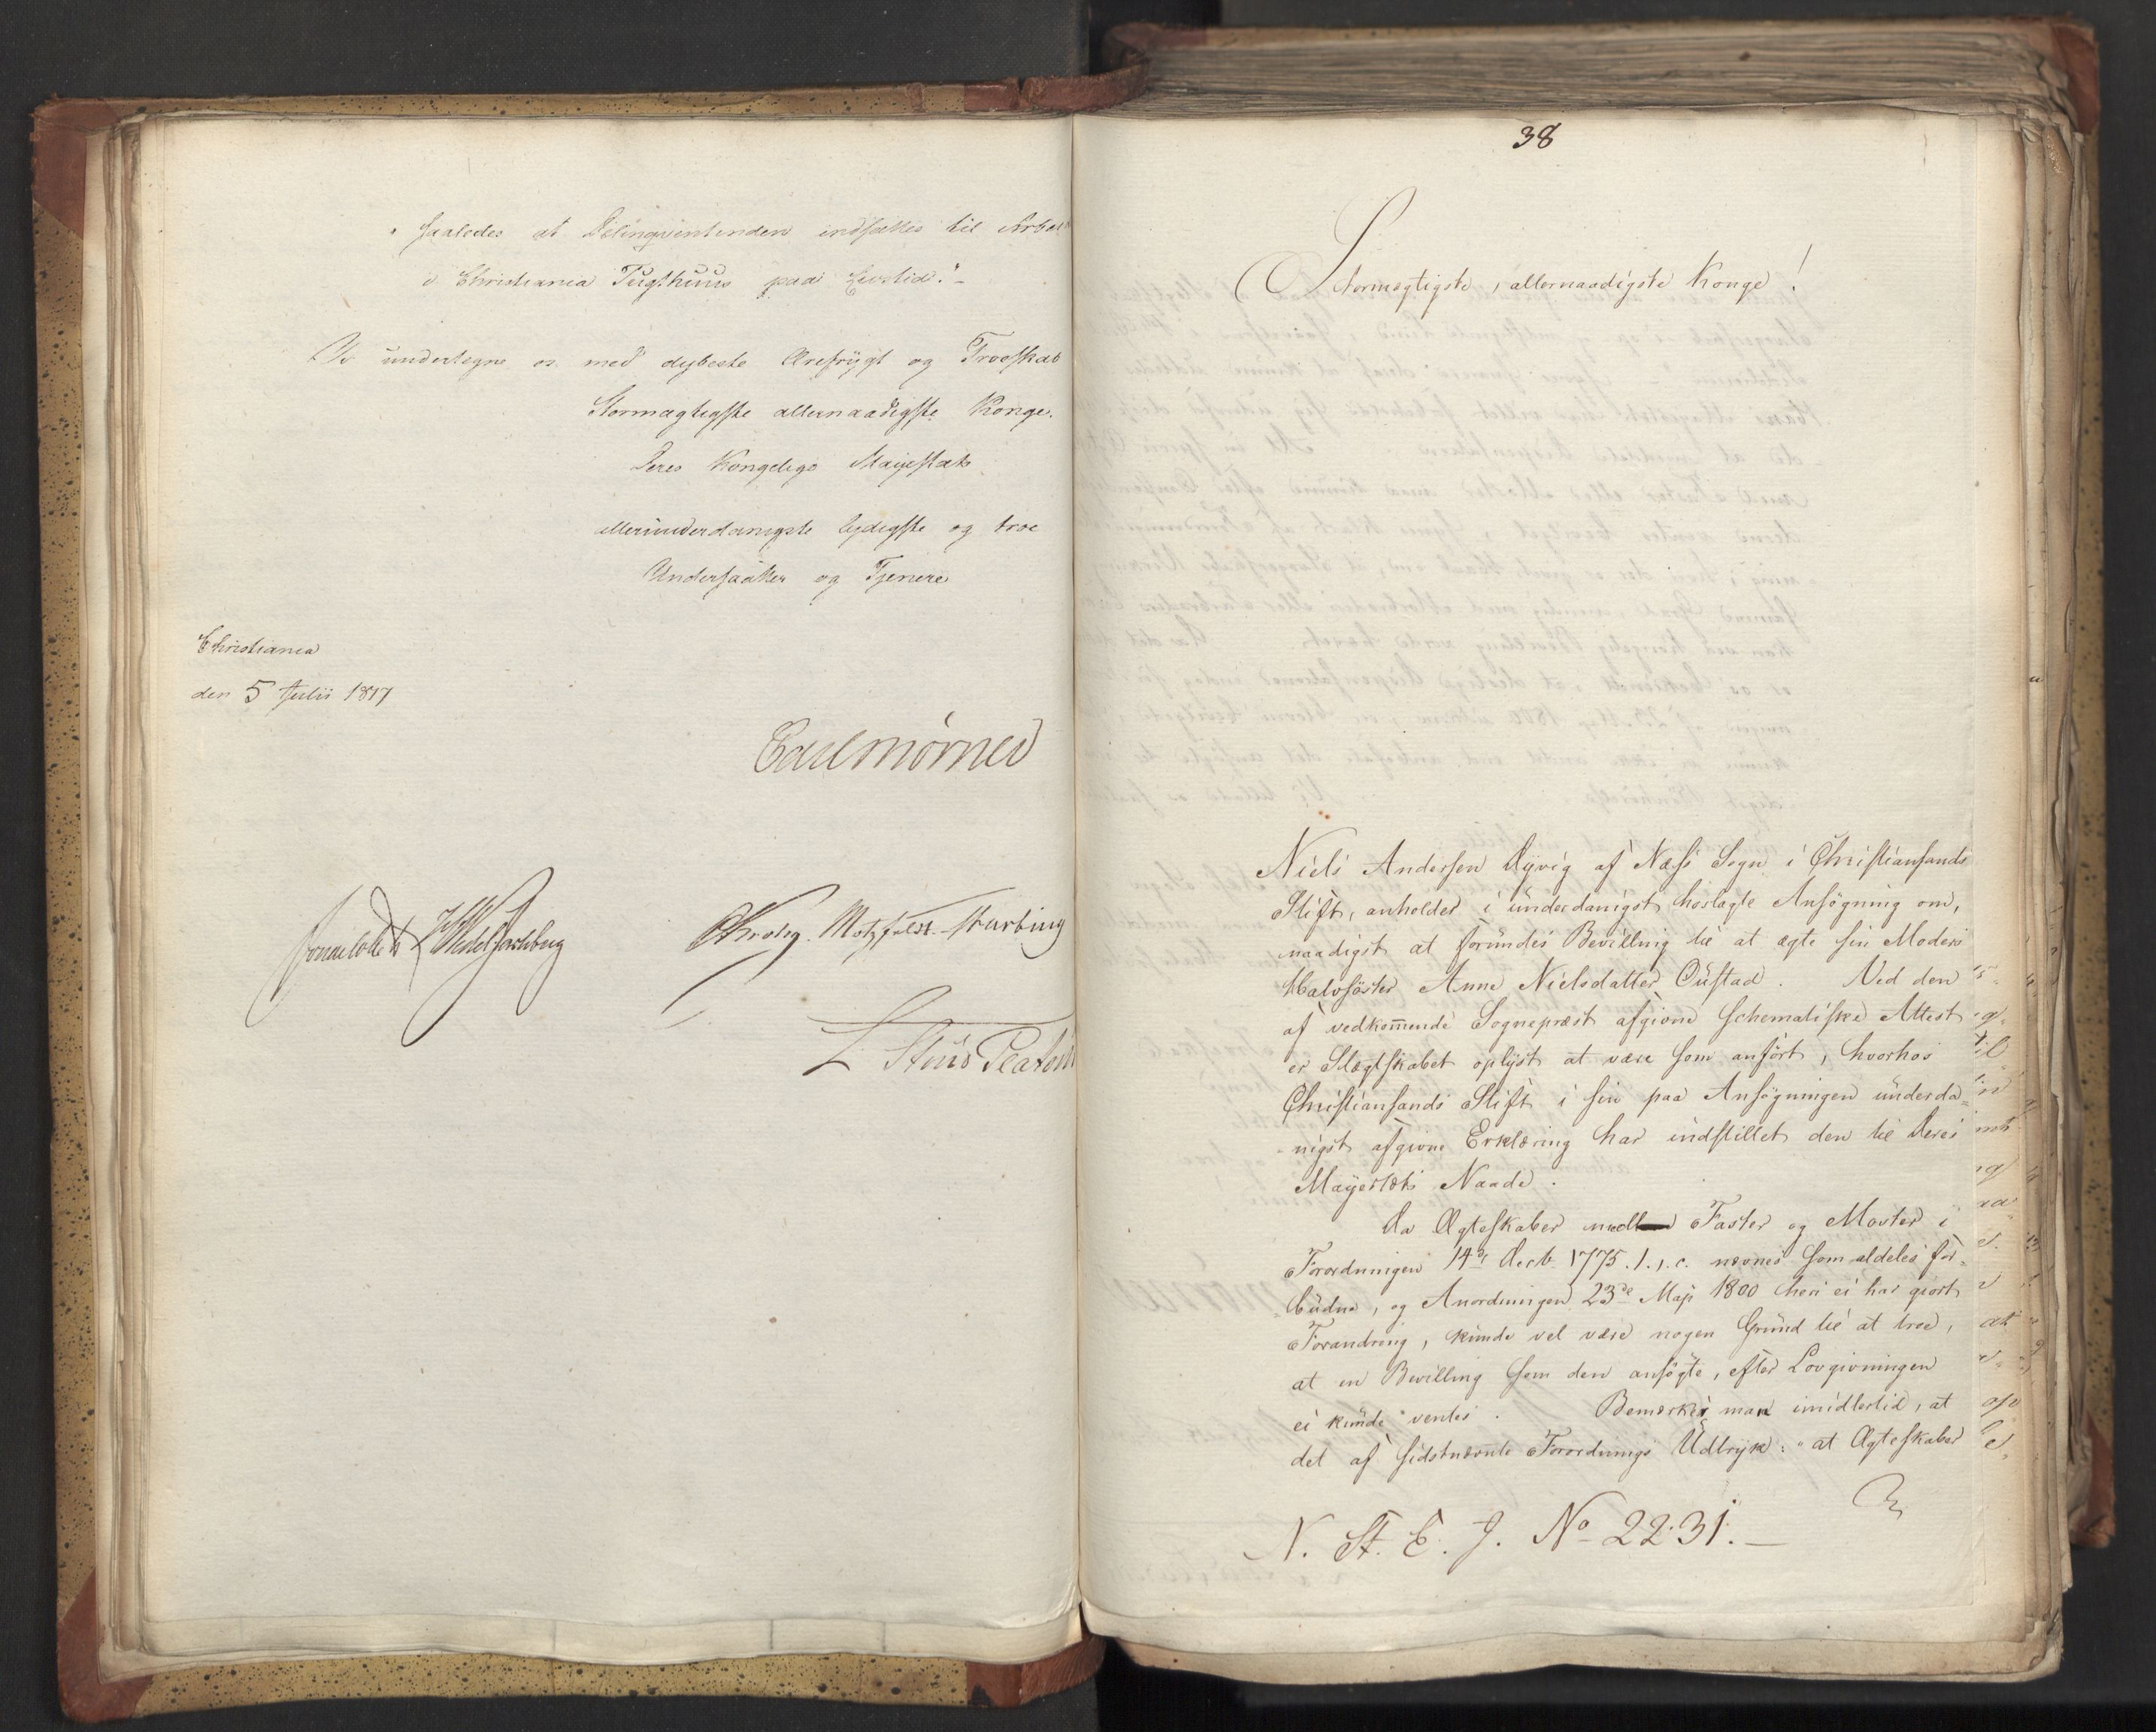 saaledes at Delinqventinden indsættes til Arbeid
i Christiania Tugthuus paa Livstid."
Vi undertegne os med dybeste Ærefrygt og Troeskab
Stormægtigste allernaadigste Konge.
Deres Kongelige Majestæts
allerunderdanigste lydigste og troe
Undersaatter og Tjenere
Christiania
den 5 Julii 1817
Carl Mörner
Sommerhielm Wedel Jarlsberg
CKrohg. Motzfeldt.
L Stoud Platou
38
Stormægtigste, allernaadigste Konge!
Niels Andersen Dyvig af Næss Sogn i Christiansands
Stift, anholder i underdanigst hoslagte Ansögning om,
naadigst at forundes Bevilling til at ægte sin Moders
Halvsöster Anne Nielsdatter Oustad. Ved den
af vedkom̄ende Sognepræst afgivne schematiske Attest
er Slægtskabet oplyst at være som anfört, hvorhos
Christiansands Stift i sin paa Ansögningen underda-
nigst afgivne Erklæring har indstillet den til Deres
Majestæts Naade.
Da Ægteskaber med Faster og Moster i
Forordningen 14de Decb 1775. 1., c. nævnes som aldeles for-
budne, og Anordningen 23de Maji 1800 heri ei har giort
Forandring, kunde vel være nogen Grund til at troe,
at en Bevilling som den ansögte, efter Lovgivningen
ei kunde ventes. Bemærker man imidlertid, at
det af sidstnævnte Forordnings Udtryk: "at Ægteskaber
N. St. E. J. No 2231.